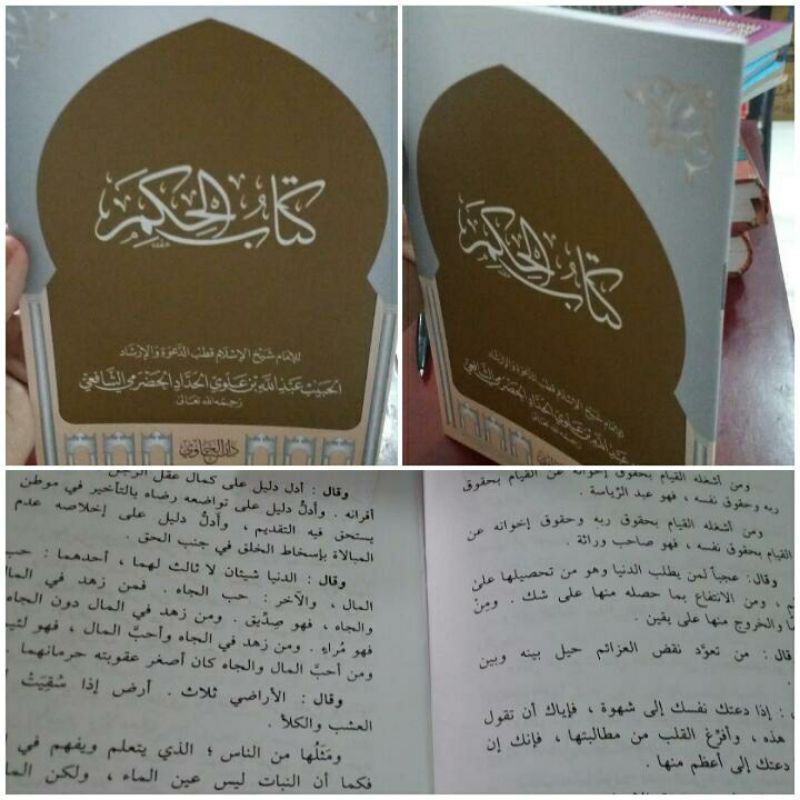 كتاب الحكم
للإمام شيخ الإسلام قطب الدعوة والإرشاد
الحبيب عبد الله بن علوي الحداد الحضرمي الشافعي
رحمه الله تعالى
دار الحاوي
كتاب الحكم
للإمام شيخ الإسلام قطب الدعوة والإرشاد
عبد الله بن علوي الحداد الحضرمي الشافعي
رحمه الله تعالى
ومن أشغله القيام بحقوق إخوانه عن القيام بحقوق
ربه وحقوق نفسه ، فهو عبد الرياسة .
ومن أشغله القيام بحقوق ربه وحقوق إخوانه عن
القيام بحقوق نفسه ، فهو صاحب وراثة .
وقال : عجباً لمن يطلب الدنيا وهو من تحصيلها على
، ومن الانتفاع بما حصله منها على شك . ومِنْ
والخروج منها على يقين .
قال : من تعوَّد نقض العزائم حيل بينه وبين
: إذا دعتك نفسك إلى شهوة ، فإياك أن تقول
هذه ، وأفرُغ القلب من مطالبتها ، فإنك إن
دعتك إلى أعظم منها .
وقال : أدل دليل على كمال عقل الرجل
أقرانه . وأدلُّ دليل على تواضعه رضاه بالتأخير في موطن
يستحق فيه التقديم ، وأدلُّ دليل على إخلاصه عدم
المبالاة بإسخاط الخلق في جنب الحق .
وقال : الدنيا شيئان لا ثالث لهما ، أحدهما : حب
المال ، والآخر : حب الجاه . فمن زهد في المال
والجاه ، فهو صِدِّيق . ومن زهد في المال دون الجاه
فهو مُراءٍ . ومن زهد في الجاه وأحبَّ المال ، فهو لئيم
ومن أحبَّ المال والجاه كان أصغر عقوبته حرمانهما .
وقال : الأراضي ثلاث . أرض إذا سُقِيَتْ
العشب والكلأ .
ومَثَلُها من الناس ؛ الذي يتعلم ويفهم في
فكما أن النبات ليس عين الماء ، ولكن